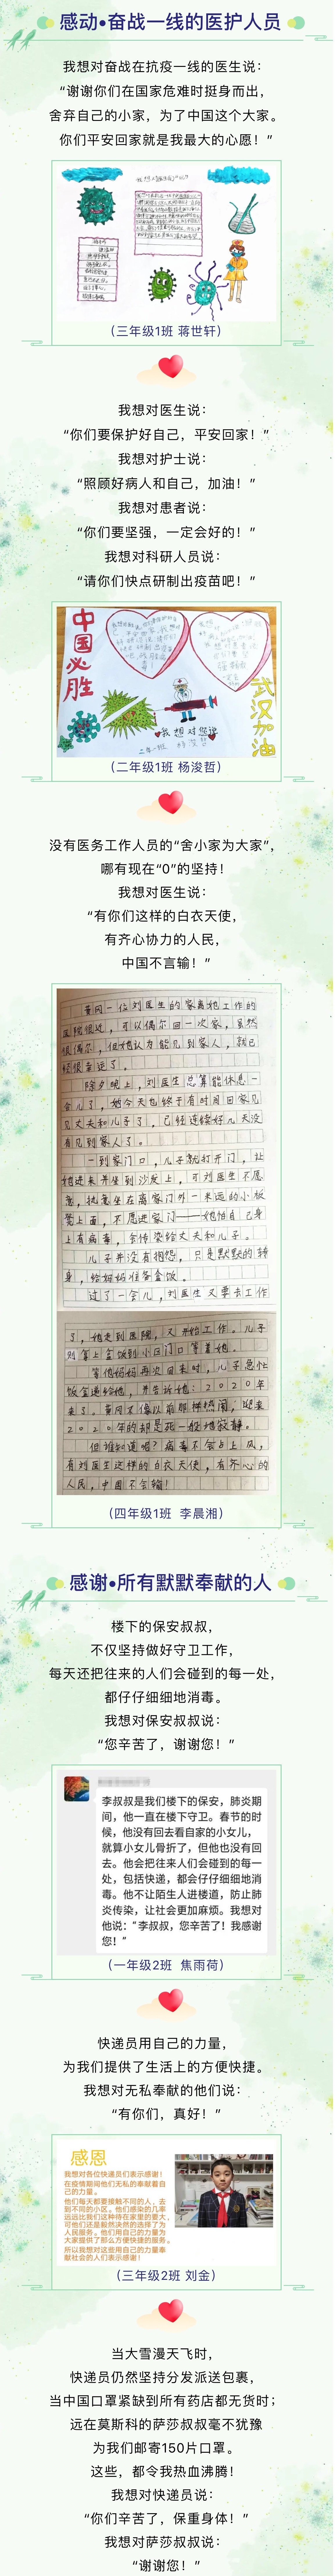 感动•奋战一线的医护人员
我想对奋战在抗疫一线的医生说：
“谢谢你们在国家危难时挺身而出，
舍弃自己的小家，为了中国这个大家。
你们平安回家就是我最大的心愿！”
（三年级1班 蒋世轩）
我想对医生说：
“你们要保护好自己，平安回家！”
我想对护士说：
“照顾好病人和自己，加油！”
我想对患者说：
“你们要坚强，一定会好的！”
我想对科研人员说：
“请你们快点研制出疫苗吧！”
中国必胜
武汉加油
我想对您说
（二年级1班 杨浚哲）
没有医务工作人员的“舍小家为大家”，
哪有现在“0”的坚持！
我想对医生说：
“有你们这样的白衣天使，
有齐心协力的人民，
中国不言输！”
黄冈一位刘医生的家离她工作的
医院很近，可以偶尔回一次家，虽然
很偶尔，但她认为能见到家人，就已
经很幸运了。
除夕晚上，刘医生总算能休息一
会儿了，她今天也终于有时间回家见
见丈夫和儿子了，已经连续好几天没
有见到家人了。
一到家门口，儿子就打开门，让
她进来并坐到沙发上，可刘医生不愿
意，执意坐在离家门外一米远的小板
凳上面，不愿进家门——她怕自己身
上有病毒，会传染给丈夫和儿子。
儿子并没有抱怨，只是默默的转
身，给妈妈准备盒饭。
过了一会儿，刘医生又要去工作
了，她走到医院，又开始工作。儿子
则拿上盒饭到小区门口等着她。
等他妈妈再次回来时，儿子急忙
饭盒递给她，并告诉她：2020年
来了。黄冈不像以前那样热闹，迎来
2020年的却是死一般地寂静。
但谁知道呢？病毒不会占上风，
有刘医生这样的白衣天使，有齐心的
人民，中国不会输！
（四年级1班 李晨湘）
感谢•所有默默奉献的人
楼下的保安叔叔，
不仅坚持做好守卫工作，
每天还把往来的人们会碰到的每一处，
都仔仔细细地消毒。
我想对保安叔叔说：
“您辛苦了，谢谢您！”
李叔叔是我们楼下的保安，肺炎期
间，他一直在楼下守卫。春节的时
候，他没有回去看自家的小女儿，
就算小女儿骨折了，但他也没有回
去。他会把往来人们会碰到的每一
处，包括快递，都会仔仔细细地消
毒。他不让陌生人进楼道，防止肺
炎传染，让社会更加麻烦。我想对
他说：“李叔叔，您辛苦了！我感谢
您！”
（一年级2班 焦雨荷）
快递员用自己的力量，
为我们提供了生活上的方便快捷。
我想对无私奉献的他们说：
“有你们，真好！”
感恩
我想对各位快递员们表示感谢！
在疫情期间他们无私的奉献着自
己的力量。
他们每天都要接触不同的人，去
到不同的小区。他们感染的几率
远远比我们这种待在家里的要大，
可他们还是毅然决然的选择了为
人民服务。他们用自己的力量为
大家提供了那么方便快捷的服务。
所以我想对这些用自己的力量奉
献社会的人们表示感谢！
（三年级2班 刘金）
当大雪漫天飞时，
快递员仍然坚持分发派送包裹，
当中国口罩紧缺到所有药店都无货时；
远在莫斯科的萨莎叔叔毫不犹豫
为我们邮寄150片口罩。
这些，都令我热血沸腾！
我想对快递员说：
“你们辛苦了，保重身体！”
我想对萨莎叔叔说：
“谢谢您！”